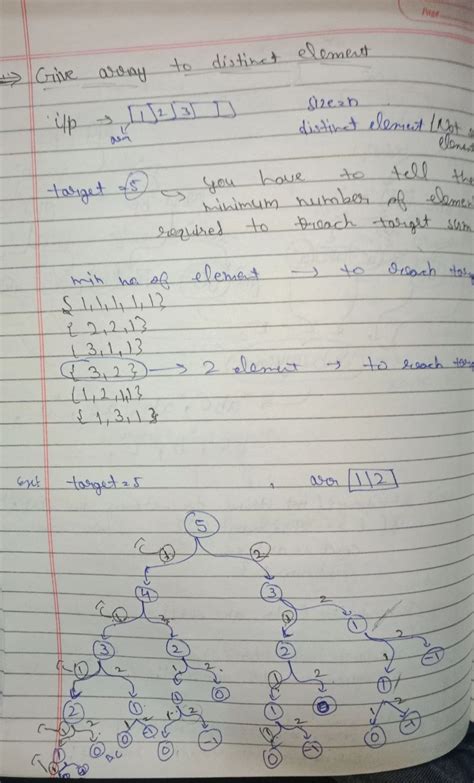 Page
⇒ Give array to distinct element
i/p → [1|2|3| ] size=n
arr distinct element / Not
element
target = 5 → you have to tell the
minimum number of elemen
required to reach target sum
min no. of element → to reach targ
{1,1,1,1,1}
{2,2,1}
{3,1,1}
{3,2} → 2 element → to reach targ
{1,2,1,1}
{1,3,1}
target = 5 , arr [1|2]
5
1 2
4 3
1 2 1 2
3 2 2 1
1 2 1 2 1 2 1 2
2 1 1 0 1 0 1 -1
1 2 1 2 1 2 1 2
1 0 0 0 -1 0 -1 0 -1